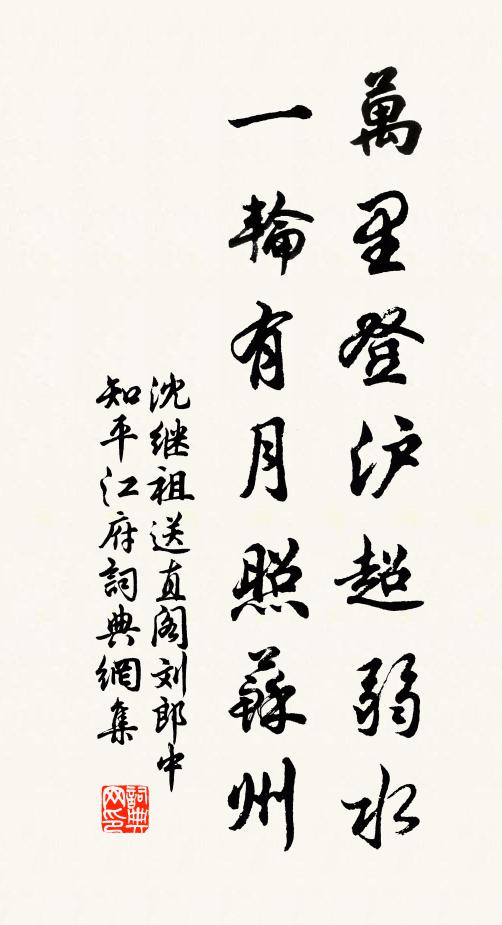 萬里登沪超弱水
一輪有月照蘇州
沈继祖送直阁刘郎中
知平江府詞典網集
詞典
网印